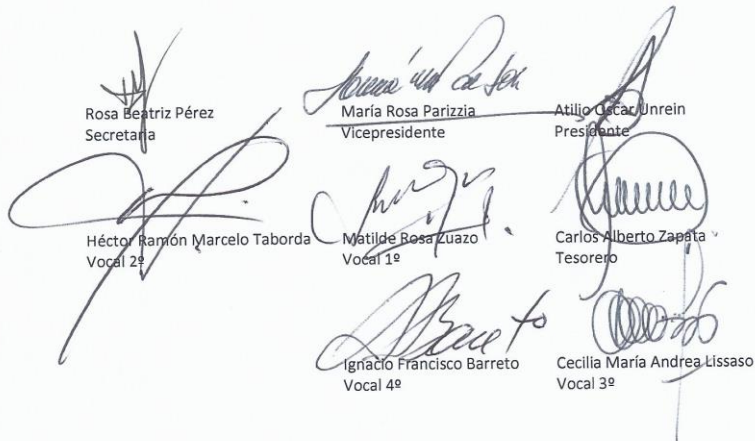 Rosa Beatriz Pérez
Secretaria
María Rosa Parizzia
Vicepresidente
Atilio Oscar Unrein
Presidente
Héctor Ramón Marcelo Taborda
Vocal 2º
Matilde Rosa Zuazo
Vocal 1º
Carlos Alberto Zapata
Tesorero
Ignacio Francisco Barreto
Vocal 4º
Cecilia María Andrea Lissaso
Vocal 3º